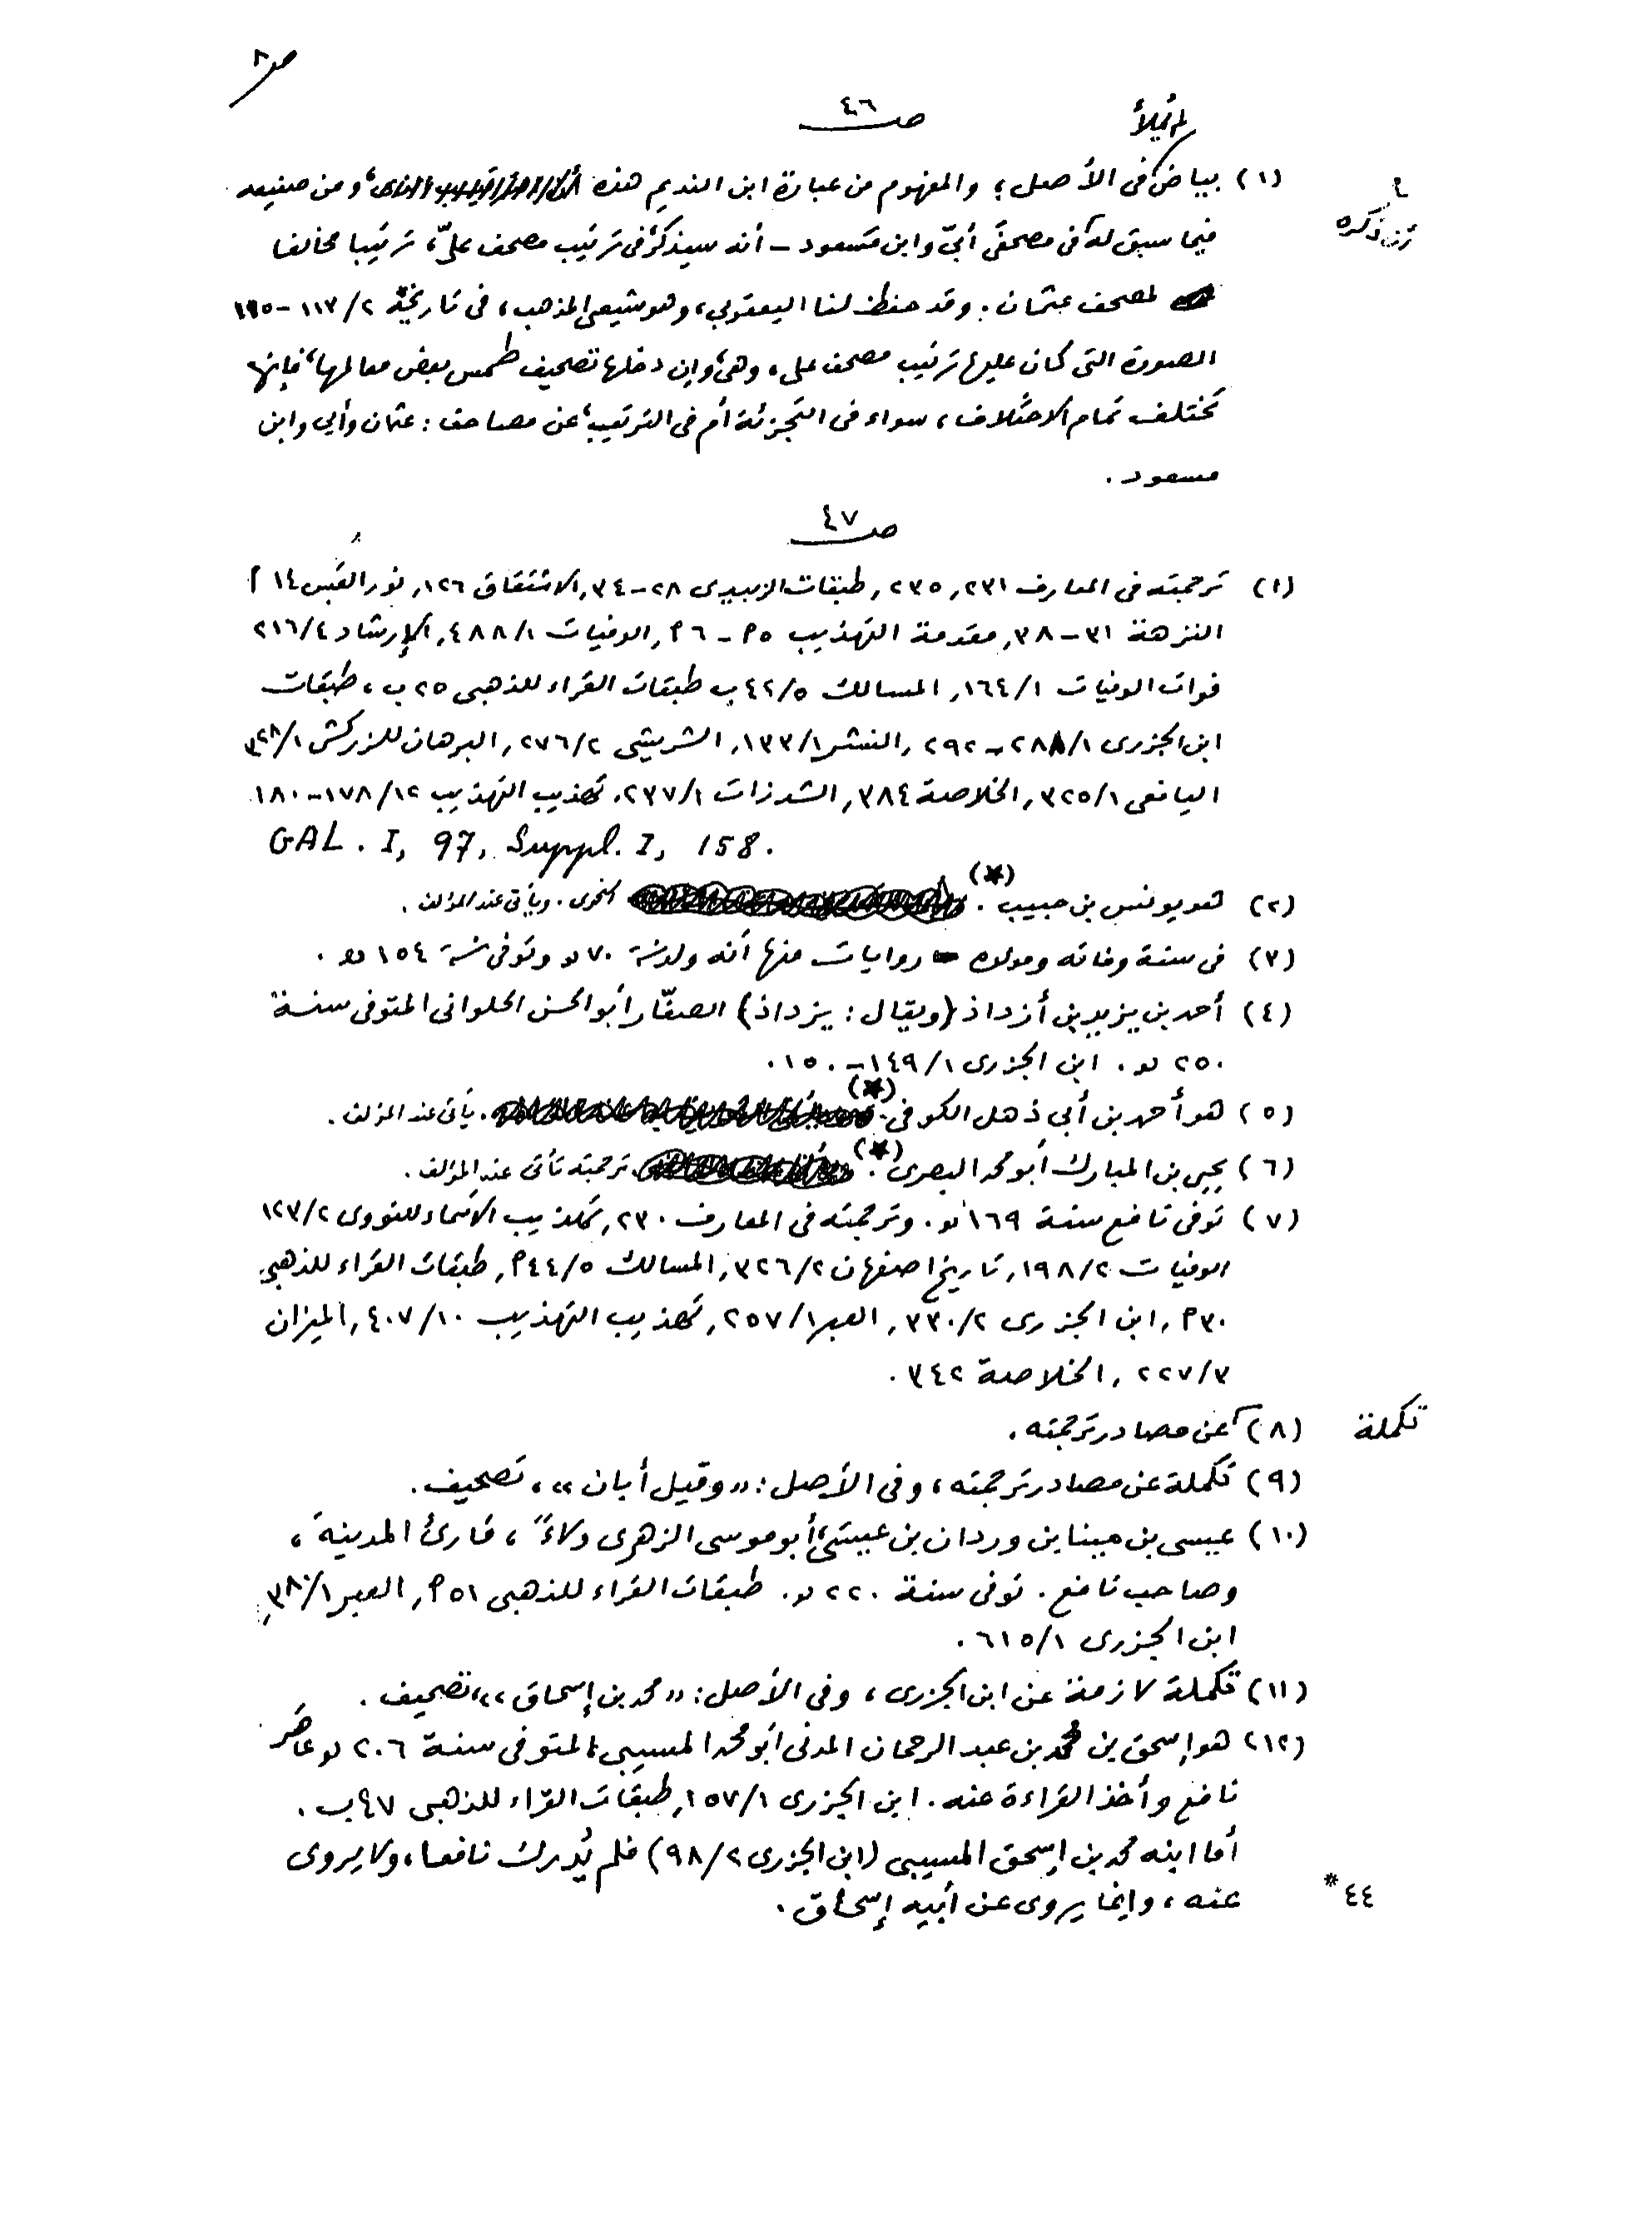 ص ٨
ص ٤٦
لم تُملأ
(١) بياض في الأصل؛ والمفهوم من عبارة ابن النديم هذه، ومن صنيعه
فيما سبق له في مصحفَي أُبيّ وابن مسعود – أنه سيذكر في ترتيب مصحف عليّ، ترتيبا مخالفا
من ذكره
لمصحف عثمان. وقد حفظ لنا اليعقوبي، وهو شيعي المذهب، في تاريخه ٢/١١٣-
الصورة التي كان عليها ترتيب مصحف علي، وهي، وإن دخلها تصحيف طمس بعض معالمها، فإنها
تختلف تمام الاختلاف، سواء في التجزئة أم في الترتيب، عن مصاحف: عثمان وأبي وابن
مسعود.
ص ٤٧
(١) ترجمته في المعارف ٢٣١، ٢٣٥، طبقات الزبيدي ٢٨-٣٤، الاشتقاق ١٢٦، نور القبس ١٤ أ
النزهة ٣١-٣٨، مقدمة التهذيب ٥أ-٦أ، الوفيات ١/٤٨٨، الإرشاد ٤/٢١٦
فوات الوفيات ١/١٦٤، المسالك ٥/٤٢ب طبقات القراء للذهبي ٢٥ب، طبقات
ابن الجزري ١/٢٨٨-٢٩٢، النشر ١/١٣٣، الشريشي ٢/٢٧٦، البرهان للزركشي ١/٣٢٨
اليافعي ١/٣٢٥، الخلاصة ٣٨٤، الشذرات ١/٢٣٧، تهذيب التهذيب ١٢/١٧٨-١٨٠.
GAL. I, 97, Suppl. I, 158.
(٢) هو يونس بن حبيب (*). النحوى. ويأتي عند المؤلف.
(٣) في سنة وفاته ومولده روايات منها أنه ولد سنة ٧٠ هـ وتوفي سنة ١٥٤ هـ.
(٤) أحمد بن يزيد بن أزداذ (ويقال: يزداذ) الصفّار أبو الحسن الحلواني المتوفى سنة
٢٥٠ هـ. ابن الجزري ١/١٤٩-١٥٠.
(٥) هو أحمد بن أبي ذهل الكوفي (*). يأتي عند المؤلف.
(٦) يحيى بن المبارك أبو محمد البصري (*). ترجمته تأتي عند المؤلف.
(٧) توفي نافع سنة ١٦٩ هـ. وترجمته في المعارف ٢٣٠، تهذيب الأسماء للنووي ٢/١٢٣
الوفيات ٢/١٩٨، تاريخ اصفهان ٢/٣٢٦، المسالك ٥/٤٤أ، طبقات القراء للذهبي
٣٠أ، ابن الجزري ٢/٣٣٠، العبر ١/٢٥٧، تهذيب التهذيب ١٠/٤٠٧، الميزان
٣/٢٢٧، الخلاصة ٣٤٢.
(٨) تكملة عن مصادر ترجمته.
(٩) تكملة عن مصادر ترجمته، وفي الأصل: «وقيل أبان»، تصحيف.
(١٠) عيسى بن مينا بن وردان بن عيسى، أبو موسى الزهري ولاءً، قارئ المدينة،
وصاحب نافع. توفي سنة ٢٢٠ هـ. طبقات القراء للذهبي ٥١أ، العبر ١/٣٨٠،
ابن الجزري ١/٦١٥.
(١١) تكملة لازمة عن ابن الجزري، وفي الأصل: «محمد بن إسحاق»، تصحيف.
(١٢) هو إسحق بن محمد بن عبد الرحمان المدني أبو محمد المسيبي، المتوفى سنة ٢٠٦ هـ عاصر
نافع وأخذ القراءة عنه. ابن الجزري ١/١٥٧، طبقات القراء للذهبي ٤٧ب.
أما ابنه محمد بن إسحق المسيبي (ابن الجزري ٢/٩٨) فلم يُدرك نافعا، ولا يروى
عنه، وإنما يروى عن أبيه إسحاق.
*٤٤